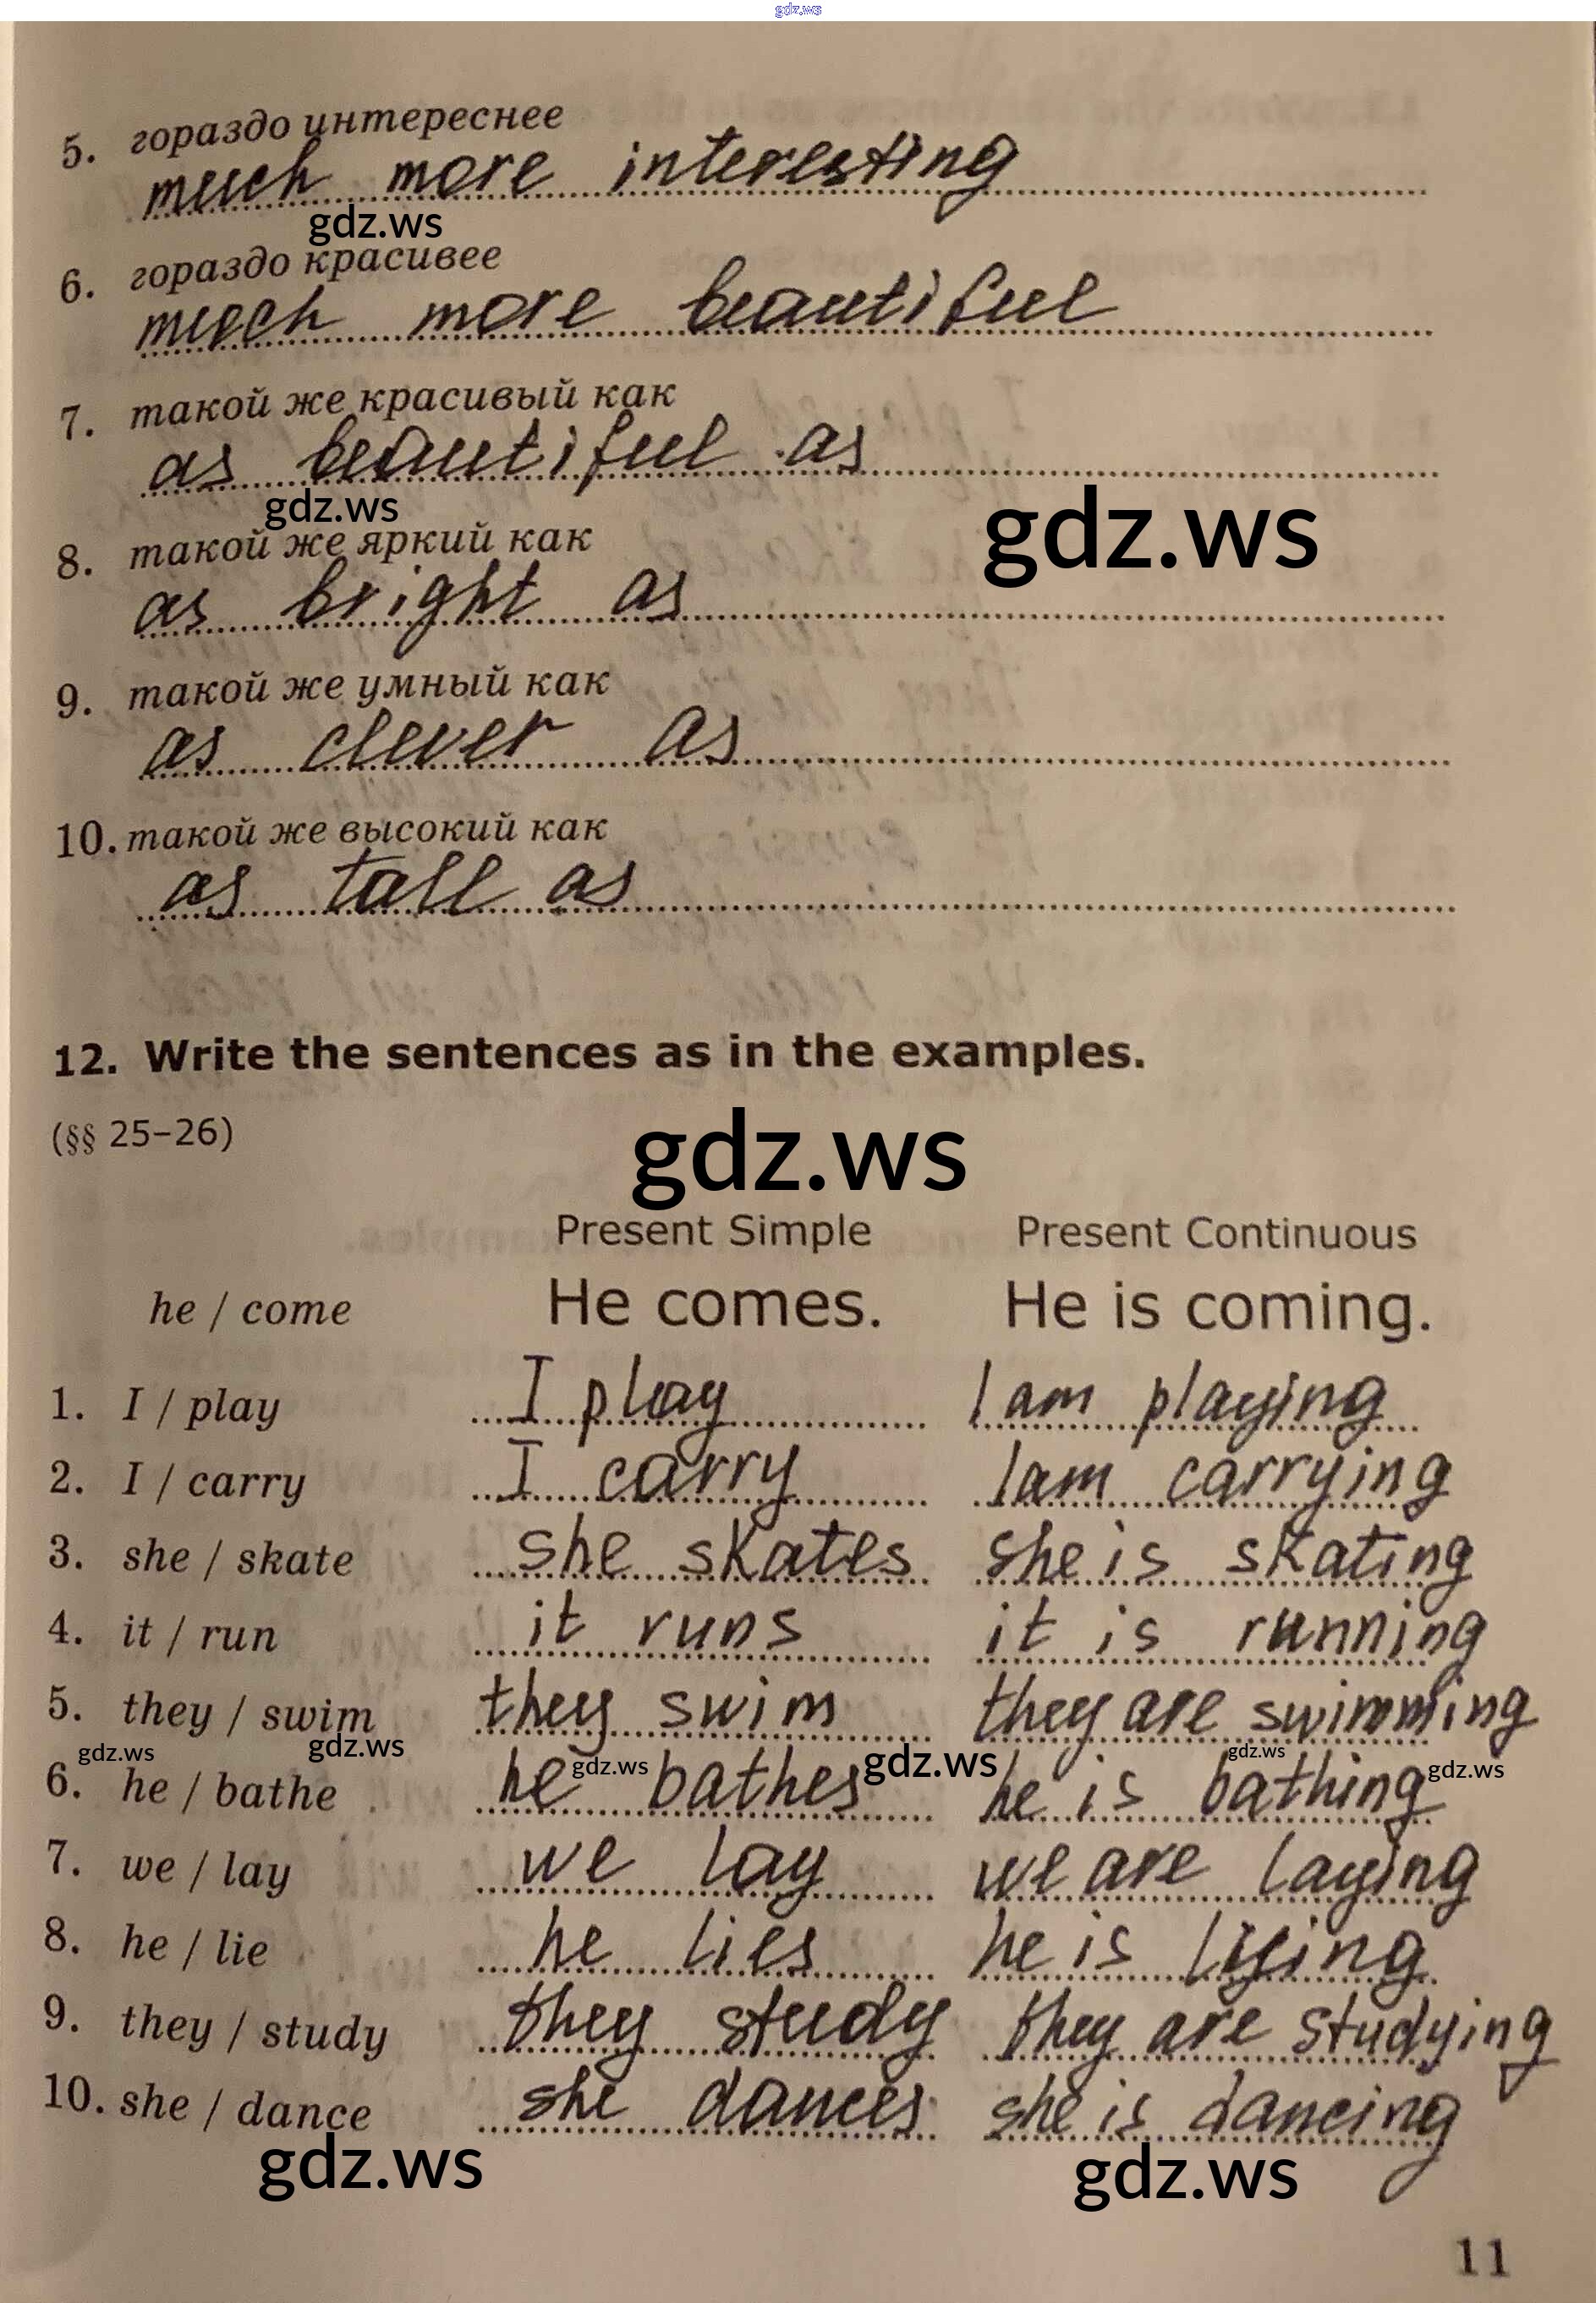 gdz.ws
5. гораздо интереснее
much more interesting
gdz.ws
6. гораздо красивее
much more beautiful
7. такой же красивый как
as beautiful as
gdz.ws
gdz.ws
8. такой же яркий как
as bright as
9. такой же умный как
as clever as
10. такой же высокий как
as tall as
12. Write the sentences as in the examples.
(§§ 25–26)
gdz.ws
Present Simple Present Continuous
he / come He comes. He is coming.
1. I / play I play I am playing
2. I / carry I carry I am carrying
3. she / skate she skates she is skating
4. it / run it runs it is running
5. they / swim they swim they are swimming
gdz.ws gdz.ws gdz.ws gdz.ws gdz.ws gdz.ws
6. he / bathe he bathes he is bathing
7. we / lay we lay we are laying
8. he / lie he lies he is lying
9. they / study they study they are studying
10. she / dance she dances she is dancing
gdz.ws gdz.ws
11